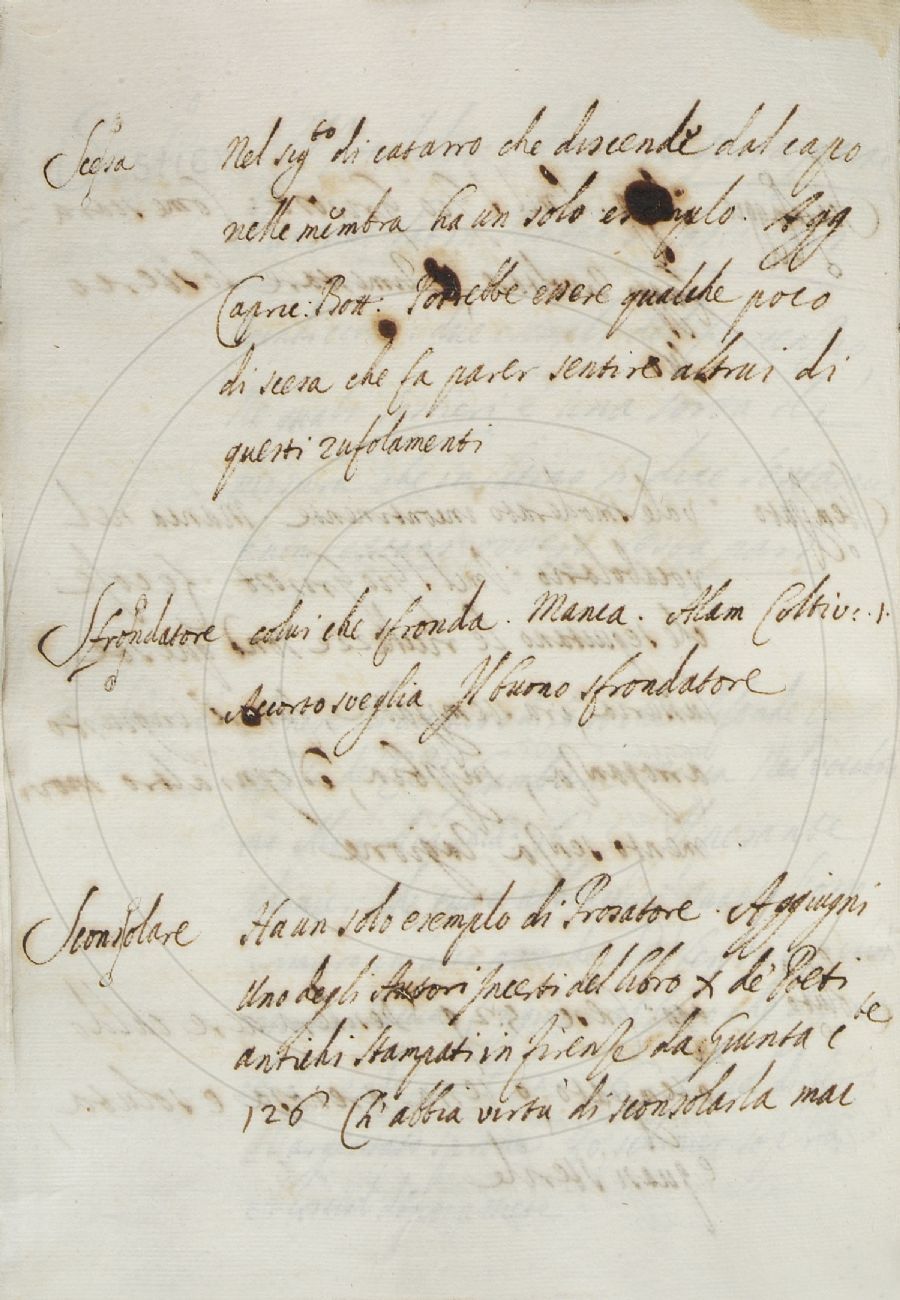 Scesa Nel sig.to di catarro che discende dal capo
nelle membra ha un solo esempio. Agg
Capric: Bott: Potrebbe essere qualche poco
di scesa che fa parer sentire altrui di
questi zufolamenti
Sfrondatore colui che sfronda. Manca. Alam Coltiv: 1.
Accorto sveglia Il buono sfrondatore
Sconsolare Ha un solo esemplo di Prosatore. Aggiugni
Uno degli Autori incerti del libro X de Poeti
antichi stampati in Firenze da Giunta c te
126 Ch'abbia virtù di sconsolarla mai